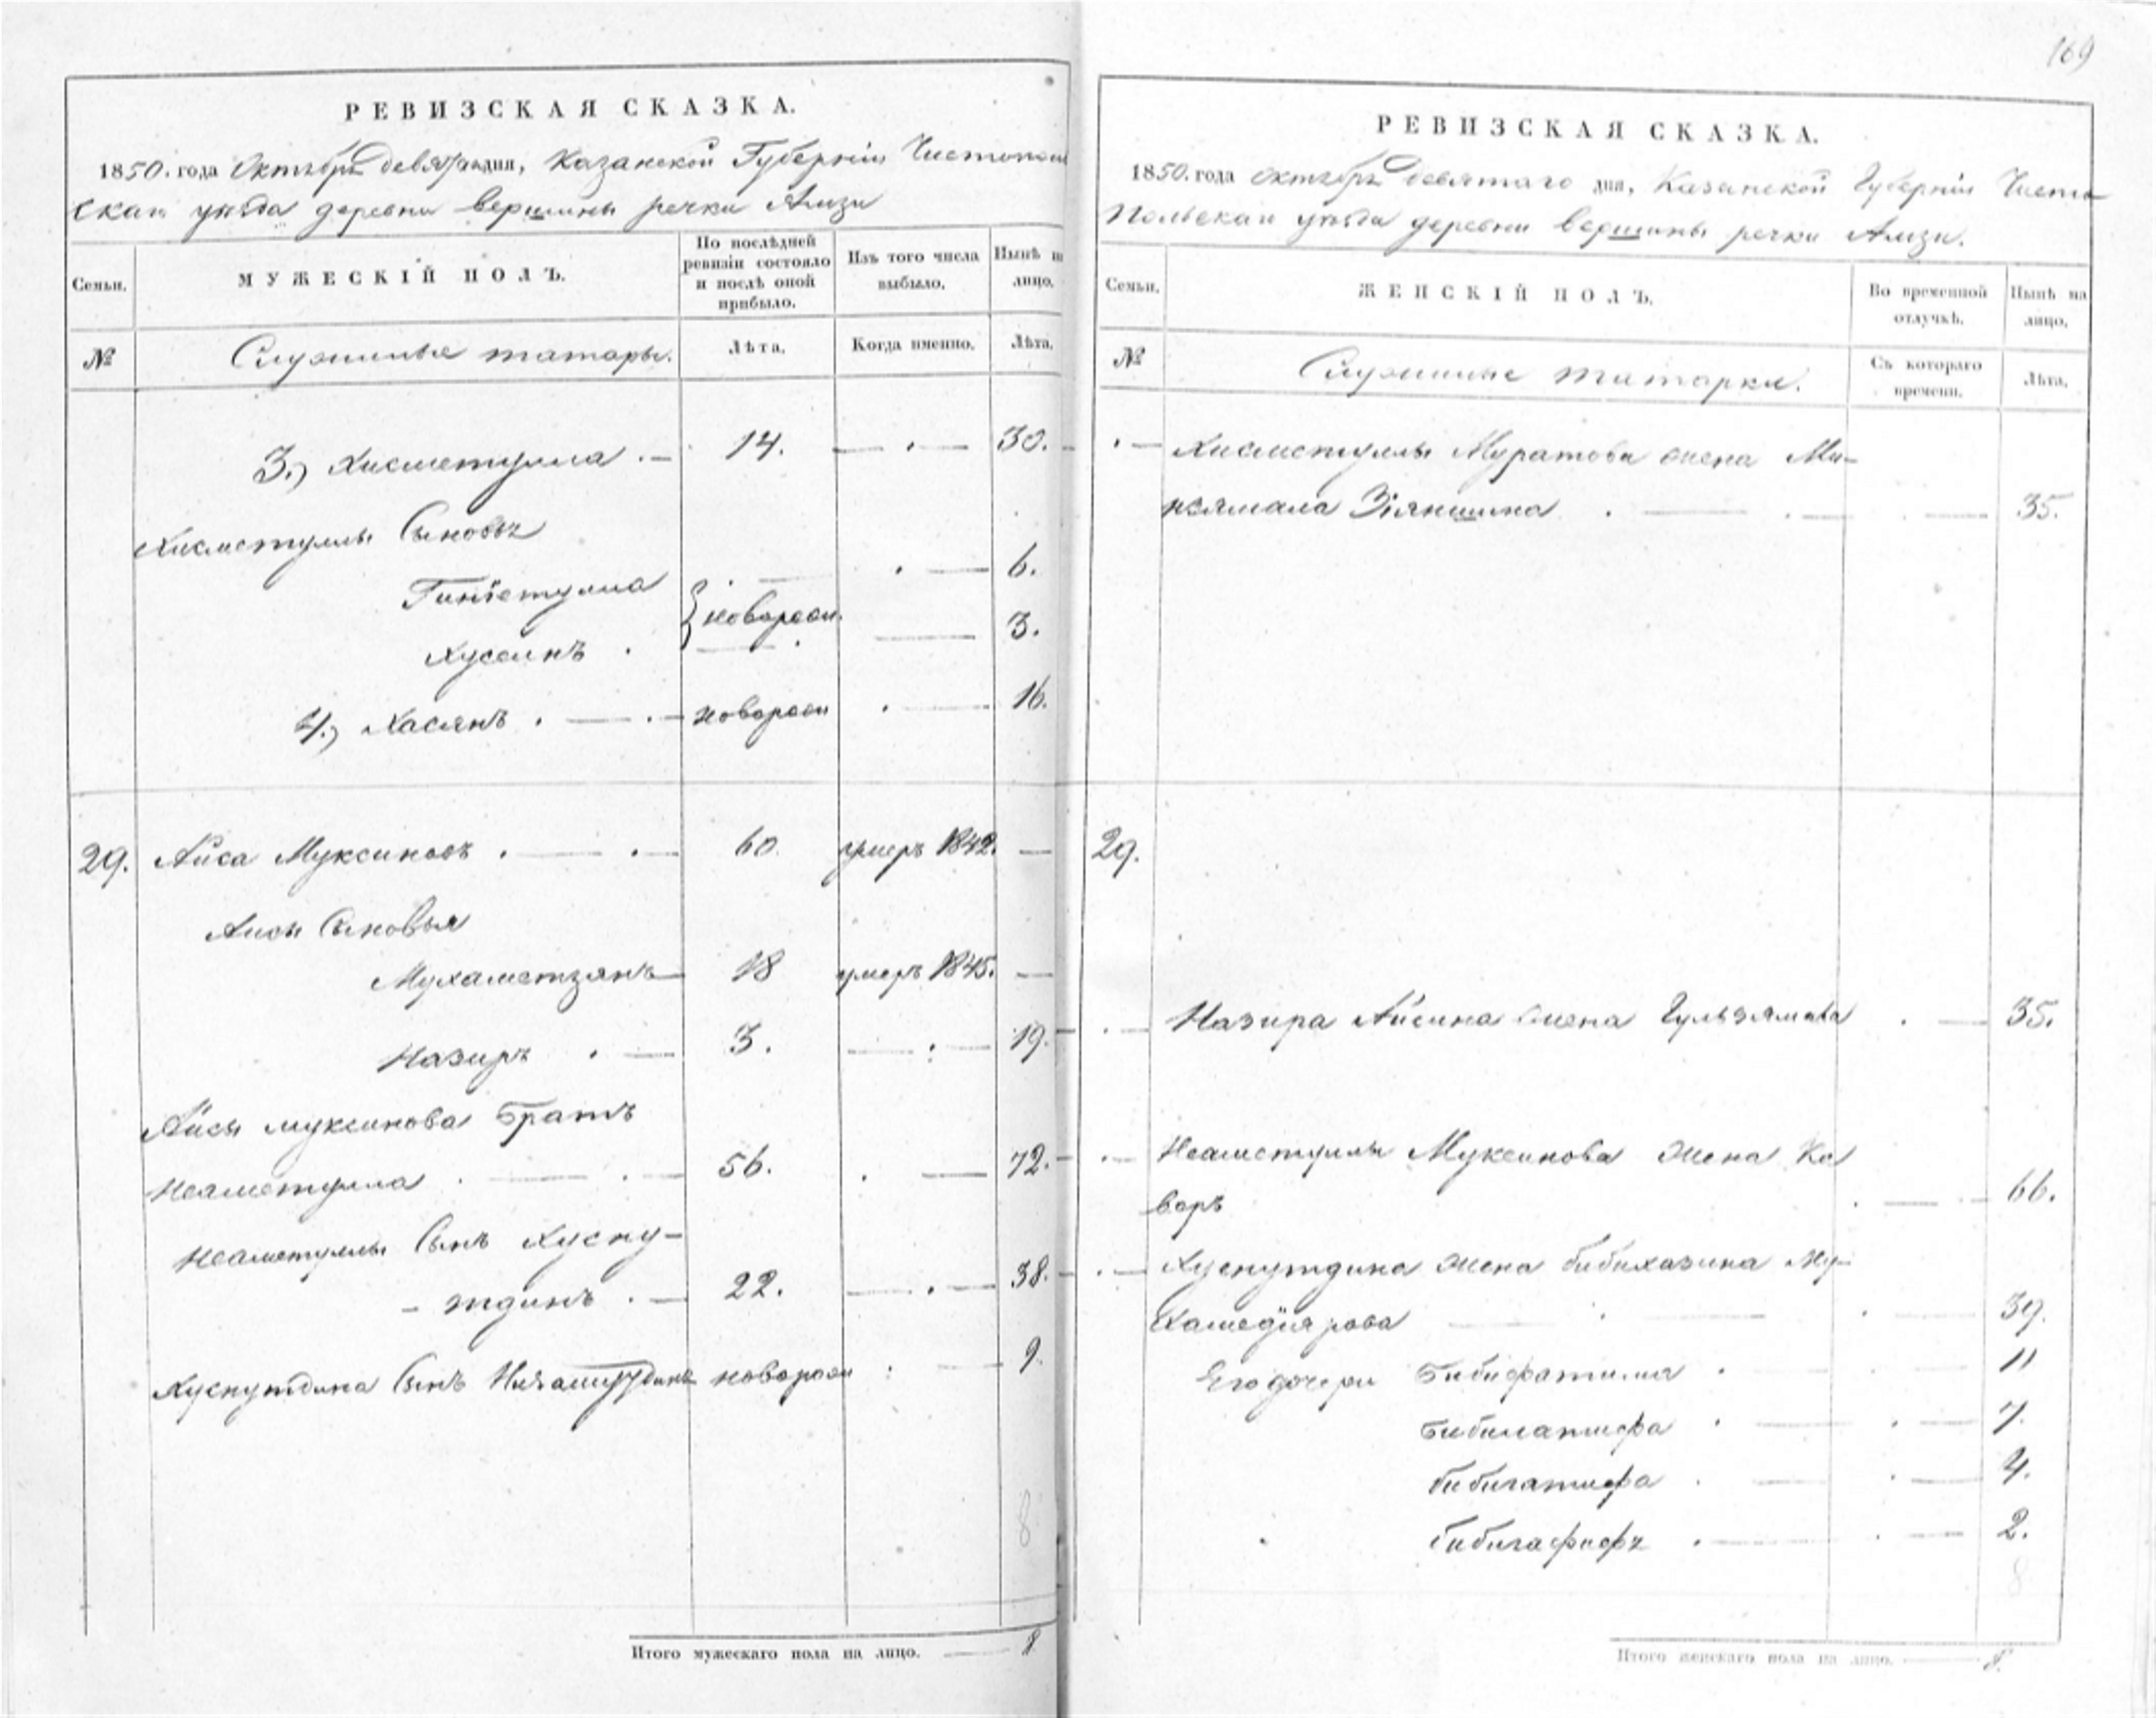 169
РЕВИЗСКАЯ СКАЗКА.
1850. года Октября девятаго дня, Казанской Губерніи Чистополь
скаго уѣзда деревни вершины речки Амзи
Семьи. МУЖЕСКІЙ ПОЛЪ. По послѣдней ревизіи состояло и послѣ оной прибыло. Изъ того числа выбыло. Нынѣ на лицо.
№ Служилые татары. Лѣта. Когда именно. Лѣта.
3.) Хисметулла 14. 30.
Хисметуллы Сыновья
Гиніетулла 6.
новорож.
Хусеинъ 3.
4.) Хасянъ новорож 16.
29. Айса Муксиновъ 60. умеръ 1842.
Аисы Сыновья
Мухаметзянъ 18 умеръ 1845.
Назиръ 3. 19.
Айсы муксинова братъ
Неаметулла 56. 72.
Неаметуллы Сынъ Хусну-
-тдинъ 22. 38.
Хуснутдина Сынъ Низамутдинъ новорож 9.
8
Итого мужескаго пола на лицо. 8
РЕВИЗСКАЯ СКАЗКА.
1850. года Октября девятаго дня, Казанской Губерніи Чисто-
польскаго уѣзда деревни вершины речки Амзи.
Семьи. ЖЕНСКІЙ ПОЛЪ. Во временной отлучкѣ. Нынѣ на лицо.
№ Служилые татарки. Съ котораго времени. Лѣта.
Хисметуллы Муратова жена Ми-
нзямала Зіяншина 35.
29.
Назира Айсина жена Гульзямала 35.
Неаметуллы Муксинова жена Ка
воръ 66.
Хуснутдина жена бибихазина Му-
хамедіярова 39.
Его дочери Бибифатима 11
Бибилатифа 7.
бибигатифа 4.
бибигафифа 2.
8
Итого женскаго пола на лицо. 8.